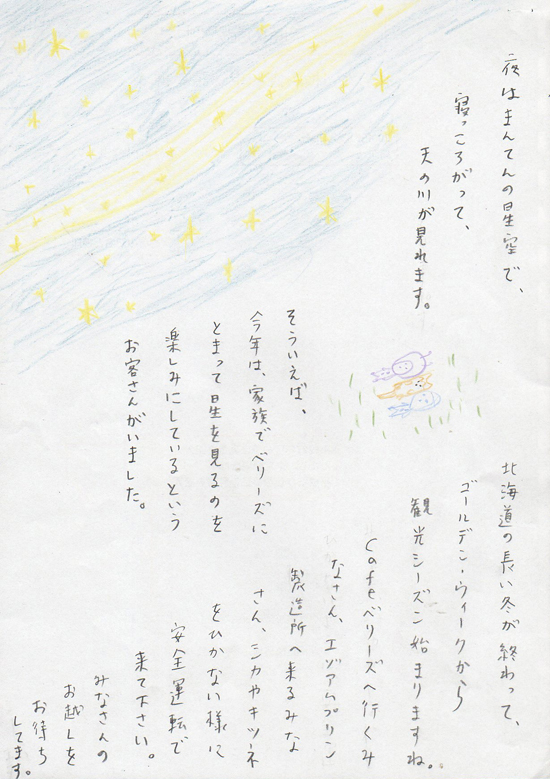 夜はまんてんの星空で、
寝っころがって、
天の川が見れます。
そういえば、
今年は、家族でベリーズに
とまって星を見るのを
楽しみにしているという
お客さんがいました。
北海道の長い冬が終わって、
ゴールデン・ウィークから
観光シーズン始まりますね。
Cafeベリーズへ行くみ
なさん、エゾアムプリン
製造所へ来るみな
さん、シカやキツネ
をひかない様に
安全運転で
来て下さい。
みなさんの
お越しを
お待ち
してます。